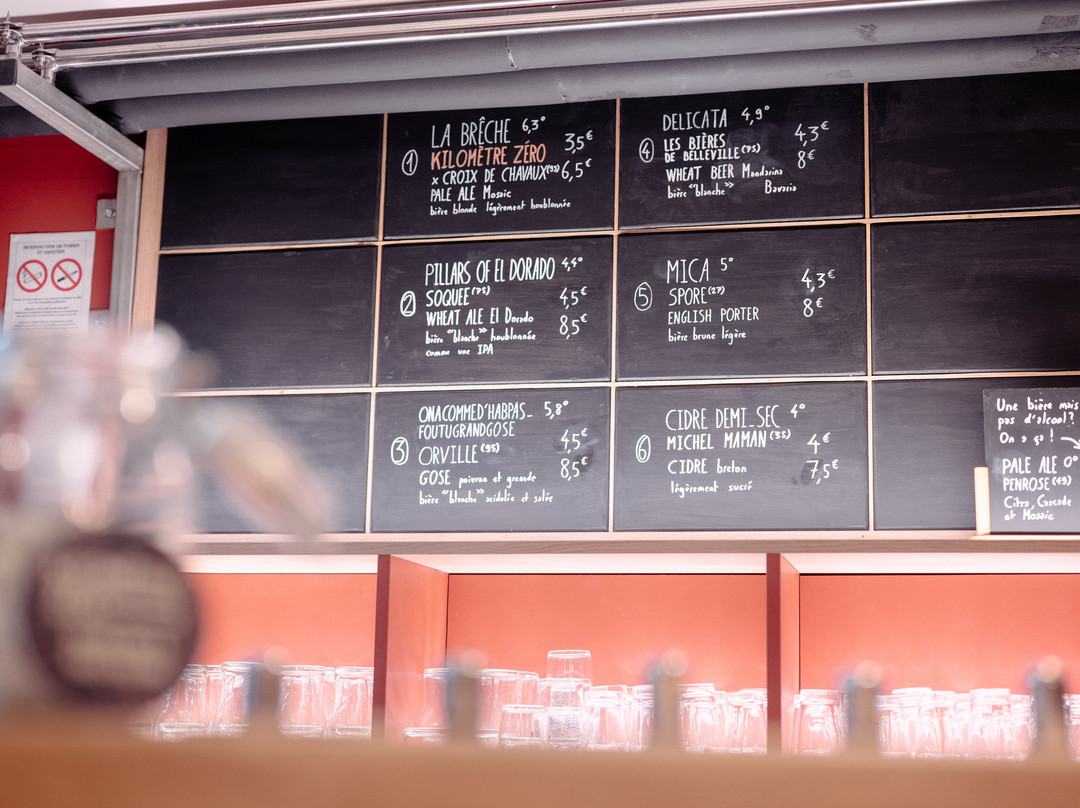 INTERDICTION DE FUMER
ET VAPOTER
1
LA BRÊCHE 6,3°
KILOMÈTRE ZÉRO 3,5€
x CROIX DE CHAVAUX(93) 6,5€
PALE ALE Mosaic
bière blonde légèrement houblonnée
2
PILLARS OF EL DORADO 4,4°
SOQUEE(75) 4,5€
WHEAT ALE El Dorado 8,5€
bière "blanche" houblonnée
comme une IPA
3
ONACOMMED'HABPAS_ 5,8°
FOUTUGRANDGOSE
ORVILLE(95) 4,5€
GOSE poivron et grenade 8,5€
bière "blanche" acidulée et salée
4
DELICATA 4,9°
LES BIÈRES 4,3€
DE BELLEVILLE(75) 8€
WHEAT BEER Mandarina
bière "blanche" Bavaria
5
MICA 5° 4,3€
SPORE(27) 8€
ENGLISH PORTER
bière brune légère
6
CIDRE DEMI_SEC 4°
MICHEL MAMAN(35) 4€
CIDRE breton 7,5€
légèrement sucré
Une bière mais
pas d'alcool?
On a ça!
PALE ALE 0°
PENROSE(49)
Citra, Cascade
et Mosaic